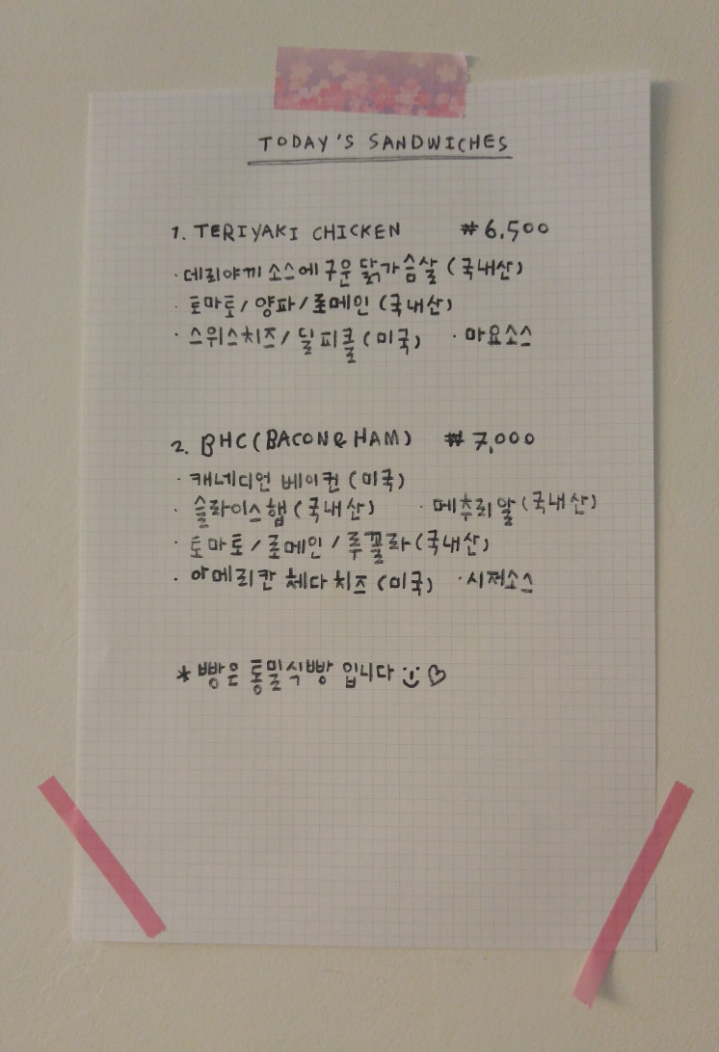 TODAY'S SANDWICHES
1. TERIYAKI CHICKEN ₩6,500
·데리야끼 소스에 구운 닭가슴살 (국내산)
· 토마토/양파/로메인 (국내산)
· 스위스치즈/딜피클 (미국) · 마요소스
2. BHC (BACON & HAM) ₩7,000
· 캐네디언 베이컨 (미국)
· 슬라이스햄 (국내산) · 메추리알 (국내산)
· 토마토/로메인/루꼴라 (국내산)
· 아메리칸 체다치즈 (미국) · 시저소스
* 빵은 통밀식빵 입니다 ☺♡